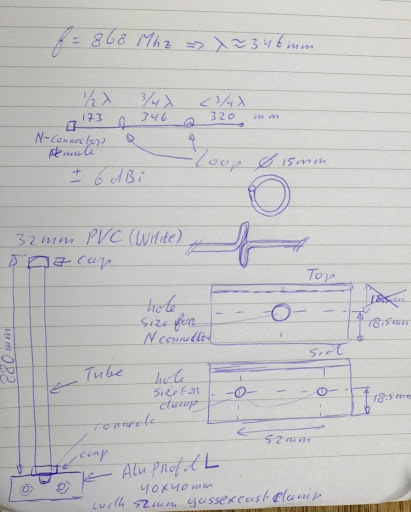 f = 868 Mhz => λ ≈ 346mm
1/2 λ 3/4 λ < 3/4 λ
173 346 320 mm
N-connector
Female
Loop Ø 15mm
± 6 dBi
32mm PVC (White)
cap
880mm
Tube
connector
cap
Alu Profil L
40x40mm
with 52mm gassexcast clamp
Top
hole
size for
N connector
18.5mm
Sid
hole
size for
clamp
18.5mm
52mm